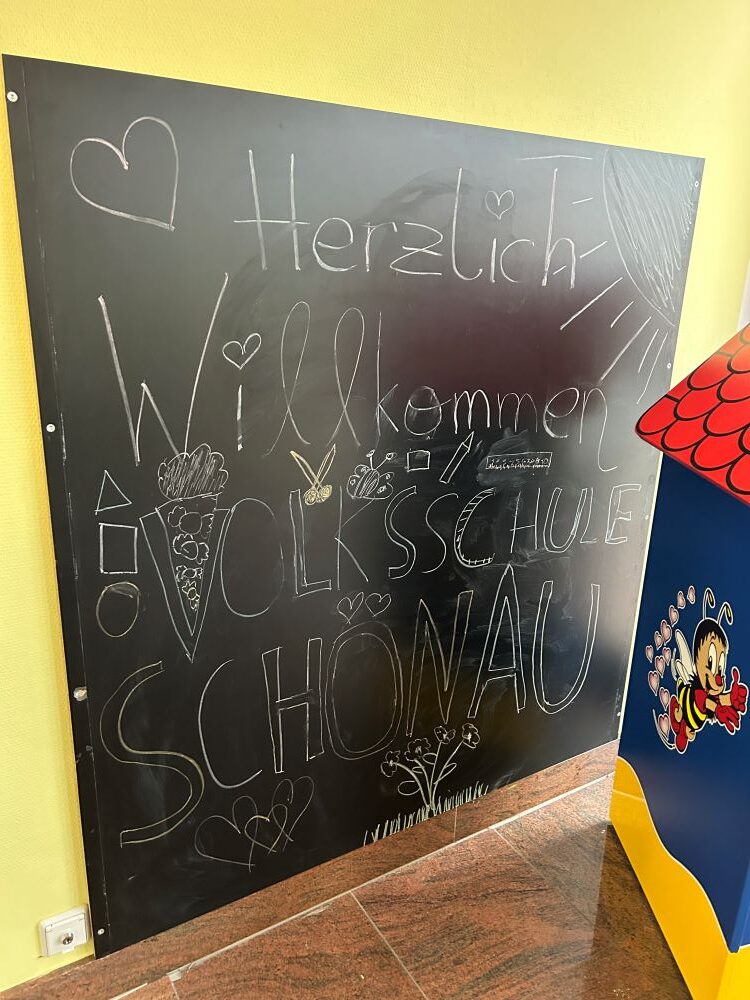 Herzlich
Willkommen
VOLKSSCHULE
SCHÖNAU